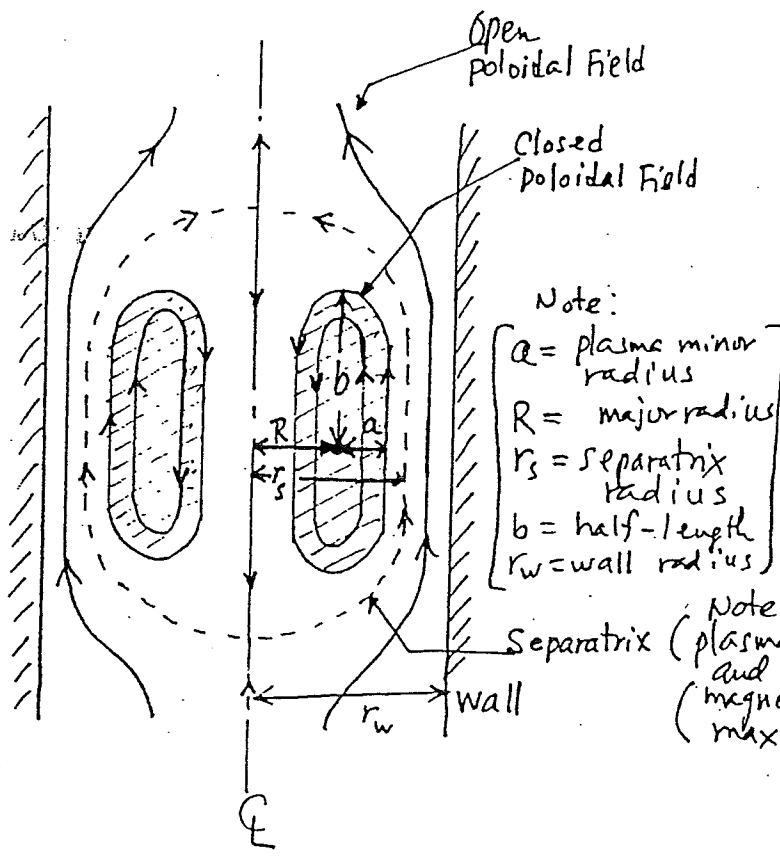 Open
Poloidal Field
Closed
Poloidal Field
Note:
a = plasma minor
radius
R = major radius
r_s = separatrix
radius
b = half-length
r_w = wall radius
b
R
a
r_s
Note
Separatrix (plasma
and
(magne
max
r_w
wall
C
L